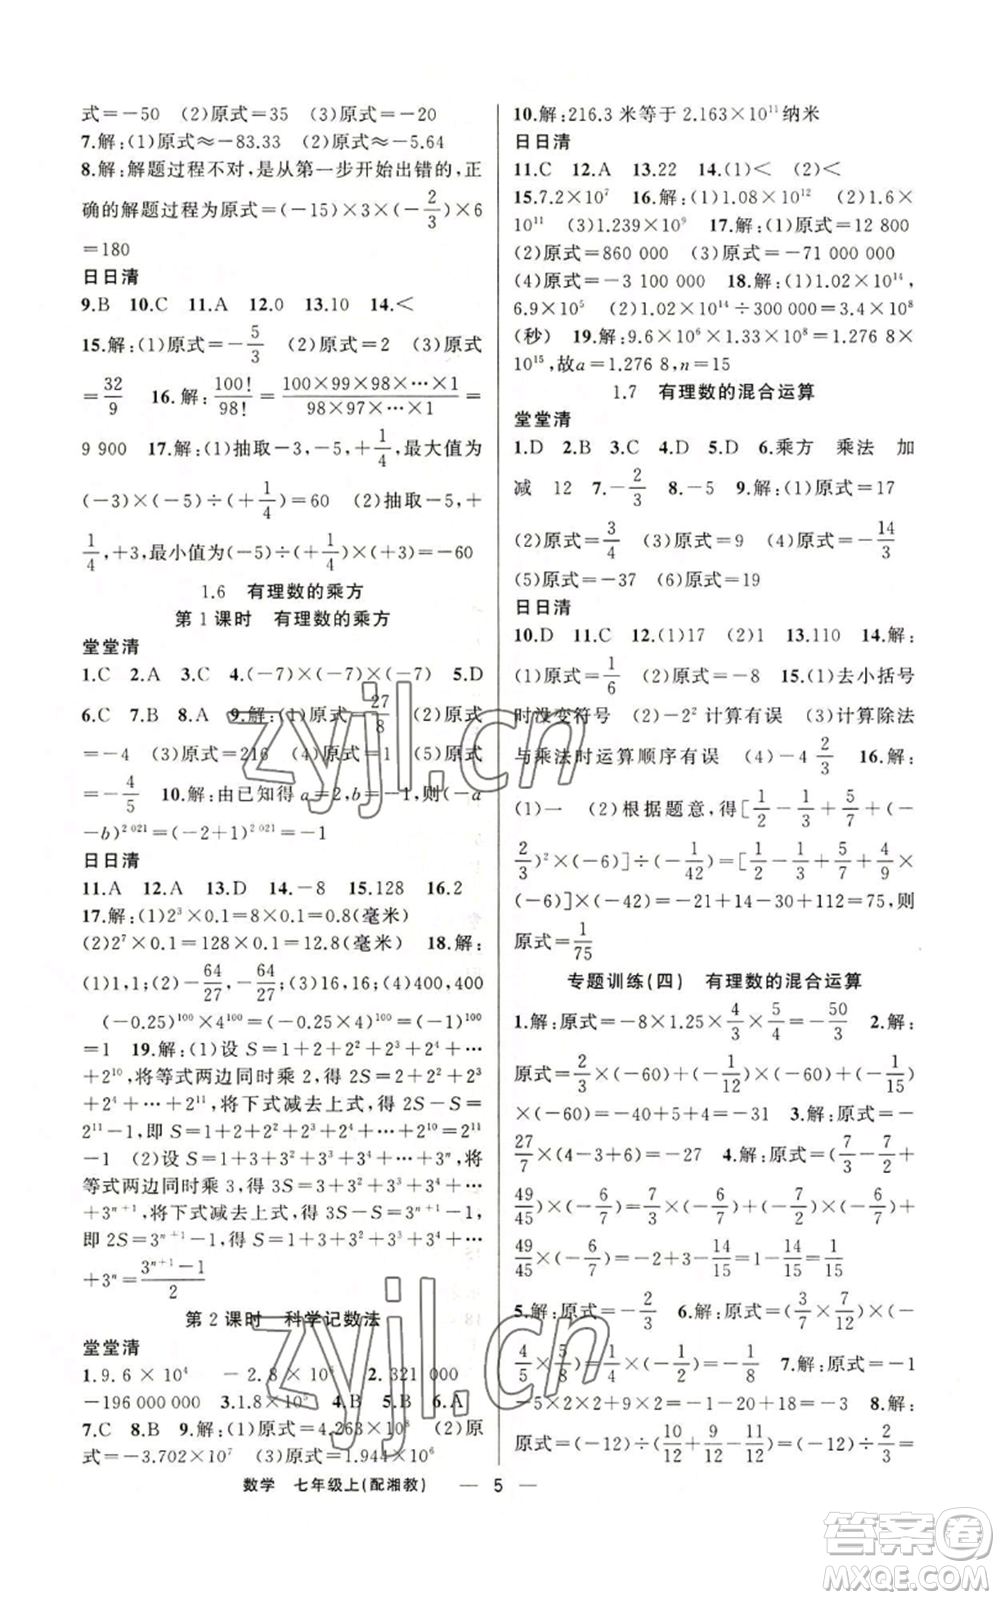 式=-50 (2)原式=35 (3)原式=-20
7.解:(1)原式≈-83.33 (2)原式≈-5.64
8.解:解题过程不对,是从第一步开始出错的,正
确的解题过程为原式=(-15)×3×(-2/3)×6
=180
日日清
9.B 10.C 11.A 12.0 13.10 14.<
15.解:(1)原式=-5/3 (2)原式=2 (3)原式
=32/9 16.解:100!/98!=(100×99×98×…×1)/(98×97×…×1)=
9 900 17.解:(1)抽取-3,-5,+1/4,最大值为
(-3)×(-5)÷(+1/4)=60 (2)抽取-5,+
1/4,+3,最小值为(-5)÷(+1/4)×(+3)=-60
1.6 有理数的乘方
第1课时 有理数的乘方
堂堂清
1.C 2.A 3.C 4.(-7)×(-7)×(-7) 5.D
6.C 7.B 8.A 9.解:(1)原式=27/8 (2)原式
=-4 (3)原式=216 (4)原式=1 (5)原式
=-4/5 10.解:由已知得a=2,b=-1,则(-a
-b)²⁰²¹=(-2+1)²⁰²¹=-1
日日清
11.A 12.A 13.D 14.-8 15.128 16.2
17.解:(1)2³×0.1=8×0.1=0.8(毫米)
(2)2⁷×0.1=128×0.1=12.8(毫米) 18.解:
(1)1,1;(2)-64/27,-64/27;(3)16,16;(4)400,400
(-0.25)¹⁰⁰×4¹⁰⁰=(-0.25×4)¹⁰⁰=(-1)¹⁰⁰
=1 19.解:(1)设S=1+2+2²+2³+2⁴+…
+2¹⁰,将等式两边同时乘2,得2S=2+2²+2³
+2⁴+…+2¹¹,将下式减去上式,得2S-S=
2¹¹-1,即S=1+2+2²+2³+2⁴+…+2¹⁰=2¹¹
-1 (2)设S=1+3+3²+3³+3⁴+…+3ⁿ,将
等式两边同时乘3,得3S=3+3²+3³+3⁴+…
+3ⁿ⁺¹,将下式减去上式,得3S-S=3ⁿ⁺¹-1,
即2S=3ⁿ⁺¹-1,得S=1+3+3²+3³+3⁴+…
+3ⁿ=(3ⁿ⁺¹-1)/2
第2课时 科学记数法
堂堂清
1.9.6×10⁴ -2.8×10⁵ 2.321 000
-196 000 000 3.1.8×10⁵ 4.B 5.B 6.A
7.C 8.B 9.解:(1)原式=4.263×10⁸ (2)原
式=-3.702×10⁷ (3)原式=1.944×10⁶
10.解:216.3米等于2.163×10¹¹纳米
日日清
11.C 12.A 13.22 14.(1)< (2)<
15.7.2×10⁷ 16.解:(1)1.08×10¹² (2)1.6×
10¹¹ (3)1.239×10⁹ 17.解:(1)原式=12 800
(2)原式=860 000 (3)原式=-71 000 000
(4)原式=-3 100 000 18.解:(1)1.02×10¹⁴,
6.9×10⁵ (2)1.02×10¹⁴÷300 000=3.4×10⁸
(秒) 19.解:9.6×10⁶×1.33×10⁸=1.276 8×
10¹⁵,故a=1.276 8,n=15
1.7 有理数的混合运算
堂堂清
1.D 2.B 3.C 4.D 5.D 6.乘方 乘法 加
减 12 7.-2/3 8.-5 9.解:(1)原式=17
(2)原式=3/4 (3)原式=9 (4)原式=-14/3
(5)原式=-37 (6)原式=19
日日清
10.D 11.C 12.(1)17 (2)1 13.110 14.解:
(1)原式=1/6 (2)原式=-8 15.(1)去小括号
时没变符号 (2)-2²计算有误 (3)计算除法
与乘法时运算顺序有误 (4)-4 2/3 16.解:
(1)一 (2)根据题意,得[1/2-1/3+5/7+(-
2/3)²×(-6)]÷(-1/42)=[1/2-1/3+5/7+4/9×
(-6)]×(-42)=-21+14-30+112=75,则
原式=1/75
专题训练(四) 有理数的混合运算
1.解:原式=-8×1.25×4/3×5/4=-50/3 2.解:
原式=2/3×(-60)+(-1/12)×(-60)+(-1/15)
×(-60)=-40+5+4=-31 3.解:原式=-
27/7×(4-3+6)=-27 4.解:原式=(7/3-7/2+
49/45)×(-6/7)=7/3×(-6/7)-7/2×(-6/7)+
49/45×(-6/7)=-2+3-14/15=1/15
5.解:原式=-2/3 6.解:原式=(3/7×7/12)×(-
4/5×5/8)=1/4×(-1/2)=-1/8 7.解:原式=-1
-5×2×2+9×2=-1-20+18=-3 8.解:
原式=(-12)÷(10/12-9/12)=(-12)÷1/12-2/3=
数学 七年级上(配湘教) — 5 —
zyjl.cn
zyjl.cn
答案圈
MXQE.COM